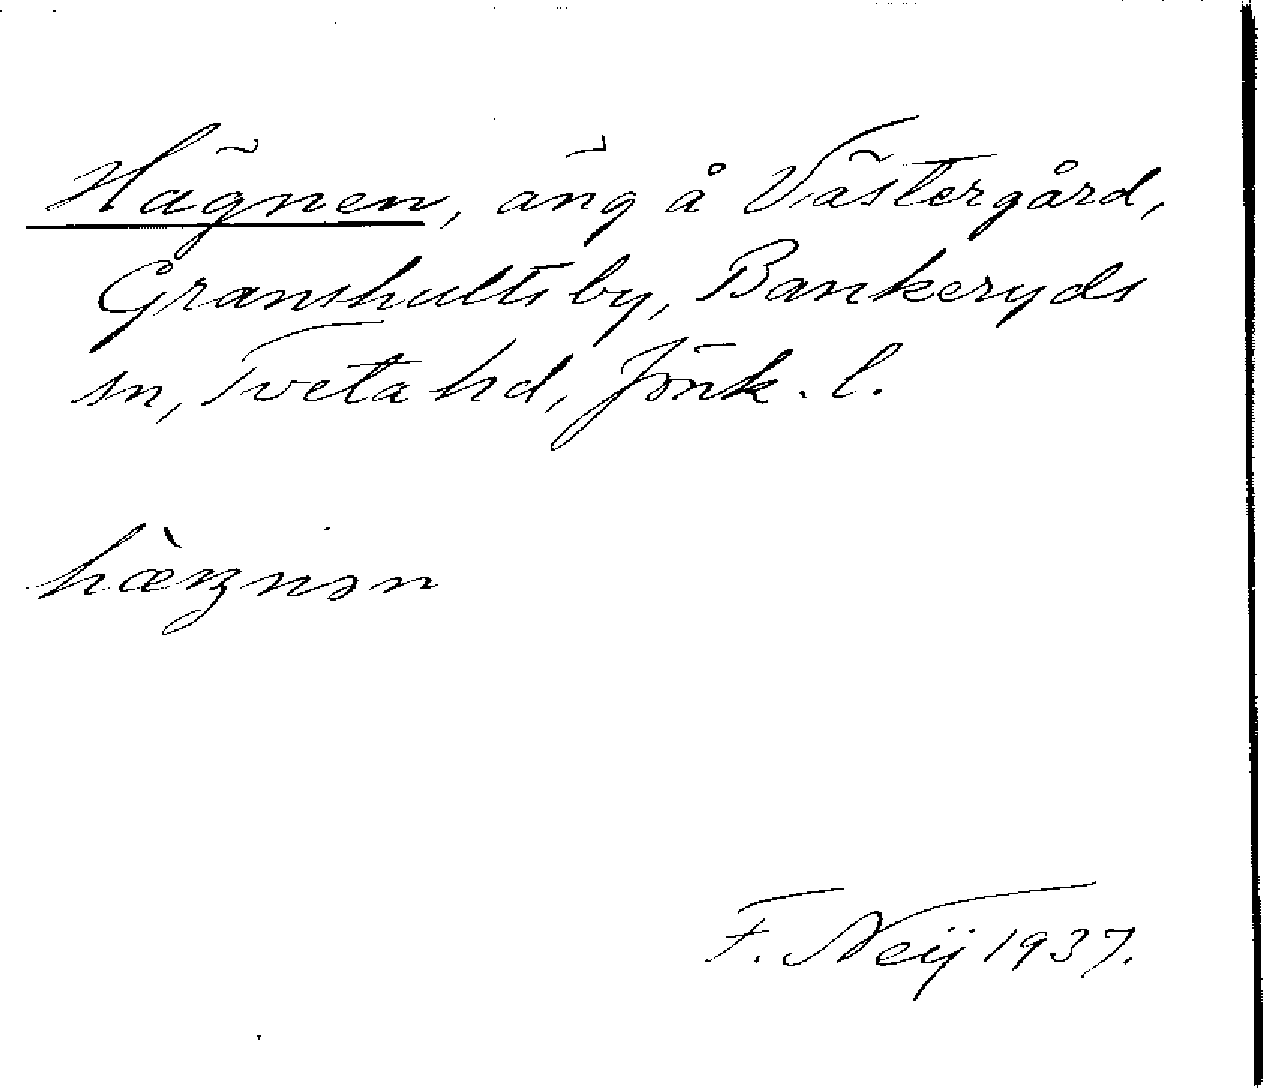 Hägnen, äng å Västergård,
Granshults by, Bankeryds
sn, Tveta hd, Jönk. l.
hæ̀ŋnən
F. Neij 1937.